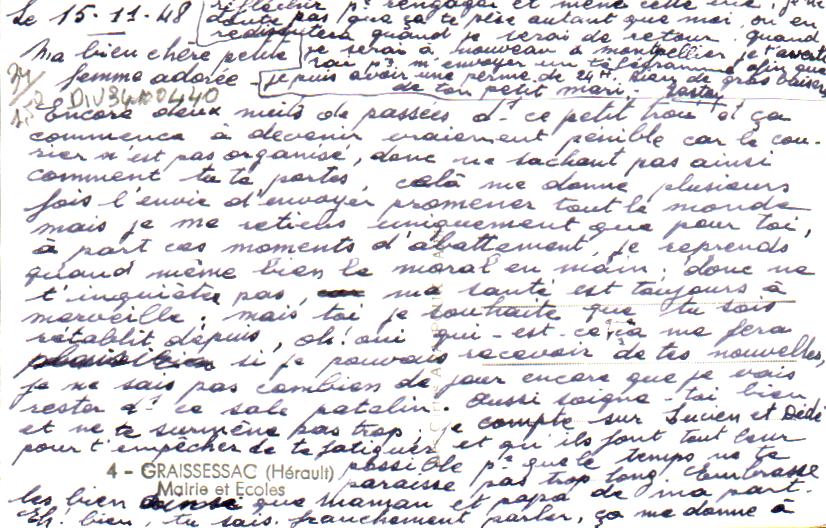 Le 15-11-48
Ma bien chère petite
femme adorée -
DIV34100440
Encore deux nuits de passées ds ce petit trou et ça
commence à devenir vraiment pénible car le cou-
rier n'est pas organisé, donc ne sachant pas ainsi
comment tu te portes, celà me donne plusieurs
fois l'envie d'envoyer promener tout le monde
mais je me retiens uniquement que pour toi,
à part ces moments d'abattement, je reprends
quand même bien le moral en main; donc ne
t'inquiète pas, ma santé est toujours à
merveille. mais toi, je souhaite que tu sois
rétablit dépuis, oh! oui qui-est-ce çà me fera
si je pouvais recevoir de tes nouvelles,
je ne sais pas combien de jour encore que je vais
rester ds ce sale patalin. Aussi soigne-toi bien
et ne te surmène pas trop, je compte sur Lucien et Dédé
pour t'empêcher de te fatiguer et qu'ils font tout leur
possible pr que le temps ne te
paraisse pas trop long. Embrasse
4 - GRAISSESSAC (Hérault)
Mairie et Ecoles
les bien que maman et papa de ma part.
Eh! bien, tu sais franchement parler, ça me donne à
réfléchir pr rengager et même cette
doute pas que ça te pèse autant que moi, on en
rediscutera quand je serai de retour. quand
je serai à nouveau à montpellier je t'averti
rai pr m'envoyer un télégramme afin que
je puis avoir une perme de 24H. Bien de gros baisers
de ton petit mari.